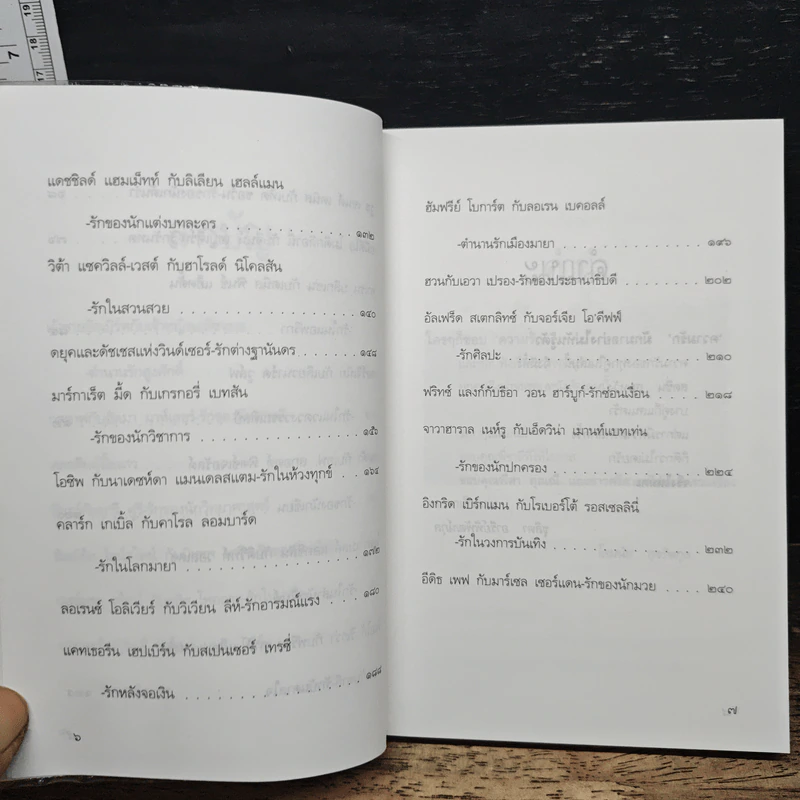 19
18
17
7
แดชชิลด์ แฮมเม็ทท์ กับลิเลียน เฮลล์แมน
-รักของนักแต่งบทละคร ๑๓๒
วิต้า แซควิลล์-เวสต์ กับฮาโรลด์ นิโคลสัน
-รักในสวนสวย ๑๔๐
ดยุคและดัชเชสแห่งวินด์เซอร์-รักต่างฐานันดร ๑๔๘
มาร์กาเร็ต มี้ด กับเกรกอรี่ เบทสัน
-รักของนักวิชาการ ๑๕๖
โอซิพ กับนาเดซห์ดา แมนเดลสแตม-รักในห้วงทุกข์ ๑๖๔
คลาร์ก เกเบิ้ล กับคาโรล ลอมบาร์ด
-รักในโลกมายา ๑๗๒
ลอเรนซ์ โอลิเวียร์ กับวิเวียน ลีห์-รักอารมณ์แรง ๑๘๐
แคทเธอรีน เฮปเบิร์น กับสเปนเซอร์ เทรซี่
-รักหลังจอเงิน ๑๘๘
๖
ฮัมฟรีย์ โบการ์ต กับลอเรน เบคอลล์
-ตำนานรักเมืองมายา ๑๙๖
ฮวนกับเอวา เปรอง-รักของประธานาธิบดี ๒๐๒
อัลเฟร็ด สเตกลิทซ์ กับจอร์เจีย โอ'คีฟฟ์
-รักศิลปะ ๒๑๐
ฟริทซ์ แลงก์กับธีอา วอน ฮาร์บูก์-รักซ่อนเงื่อน ๒๑๘
จาวาฮาราล เนห์รู กับเอ็ดวิน่า เมานท์แบทเท่น
-รักของนักปกครอง ๒๒๔
อิงกริด เบิร์กแมน กับโรเบอร์โต้ รอสเซลลินี่
-รักในวงการบันเทิง ๒๓๒
อีดิธ เพฟ กับมาร์เซล เซอร์แดน-รักของนักมวย ๒๔๐
๗